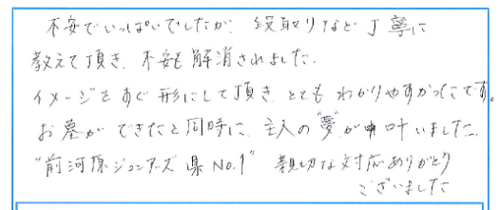 不安でいっぱいでしたが、段取りなど丁寧に
教えて頂き、不安も解消されました。
イメージをすぐ形にして頂き、とてもわかりやすかったです。
お墓ができたと同時に、主人の"夢"が叶いました。
"前河原ジュニアーズ 県No.1" 親切な対応ありがとう
ございました